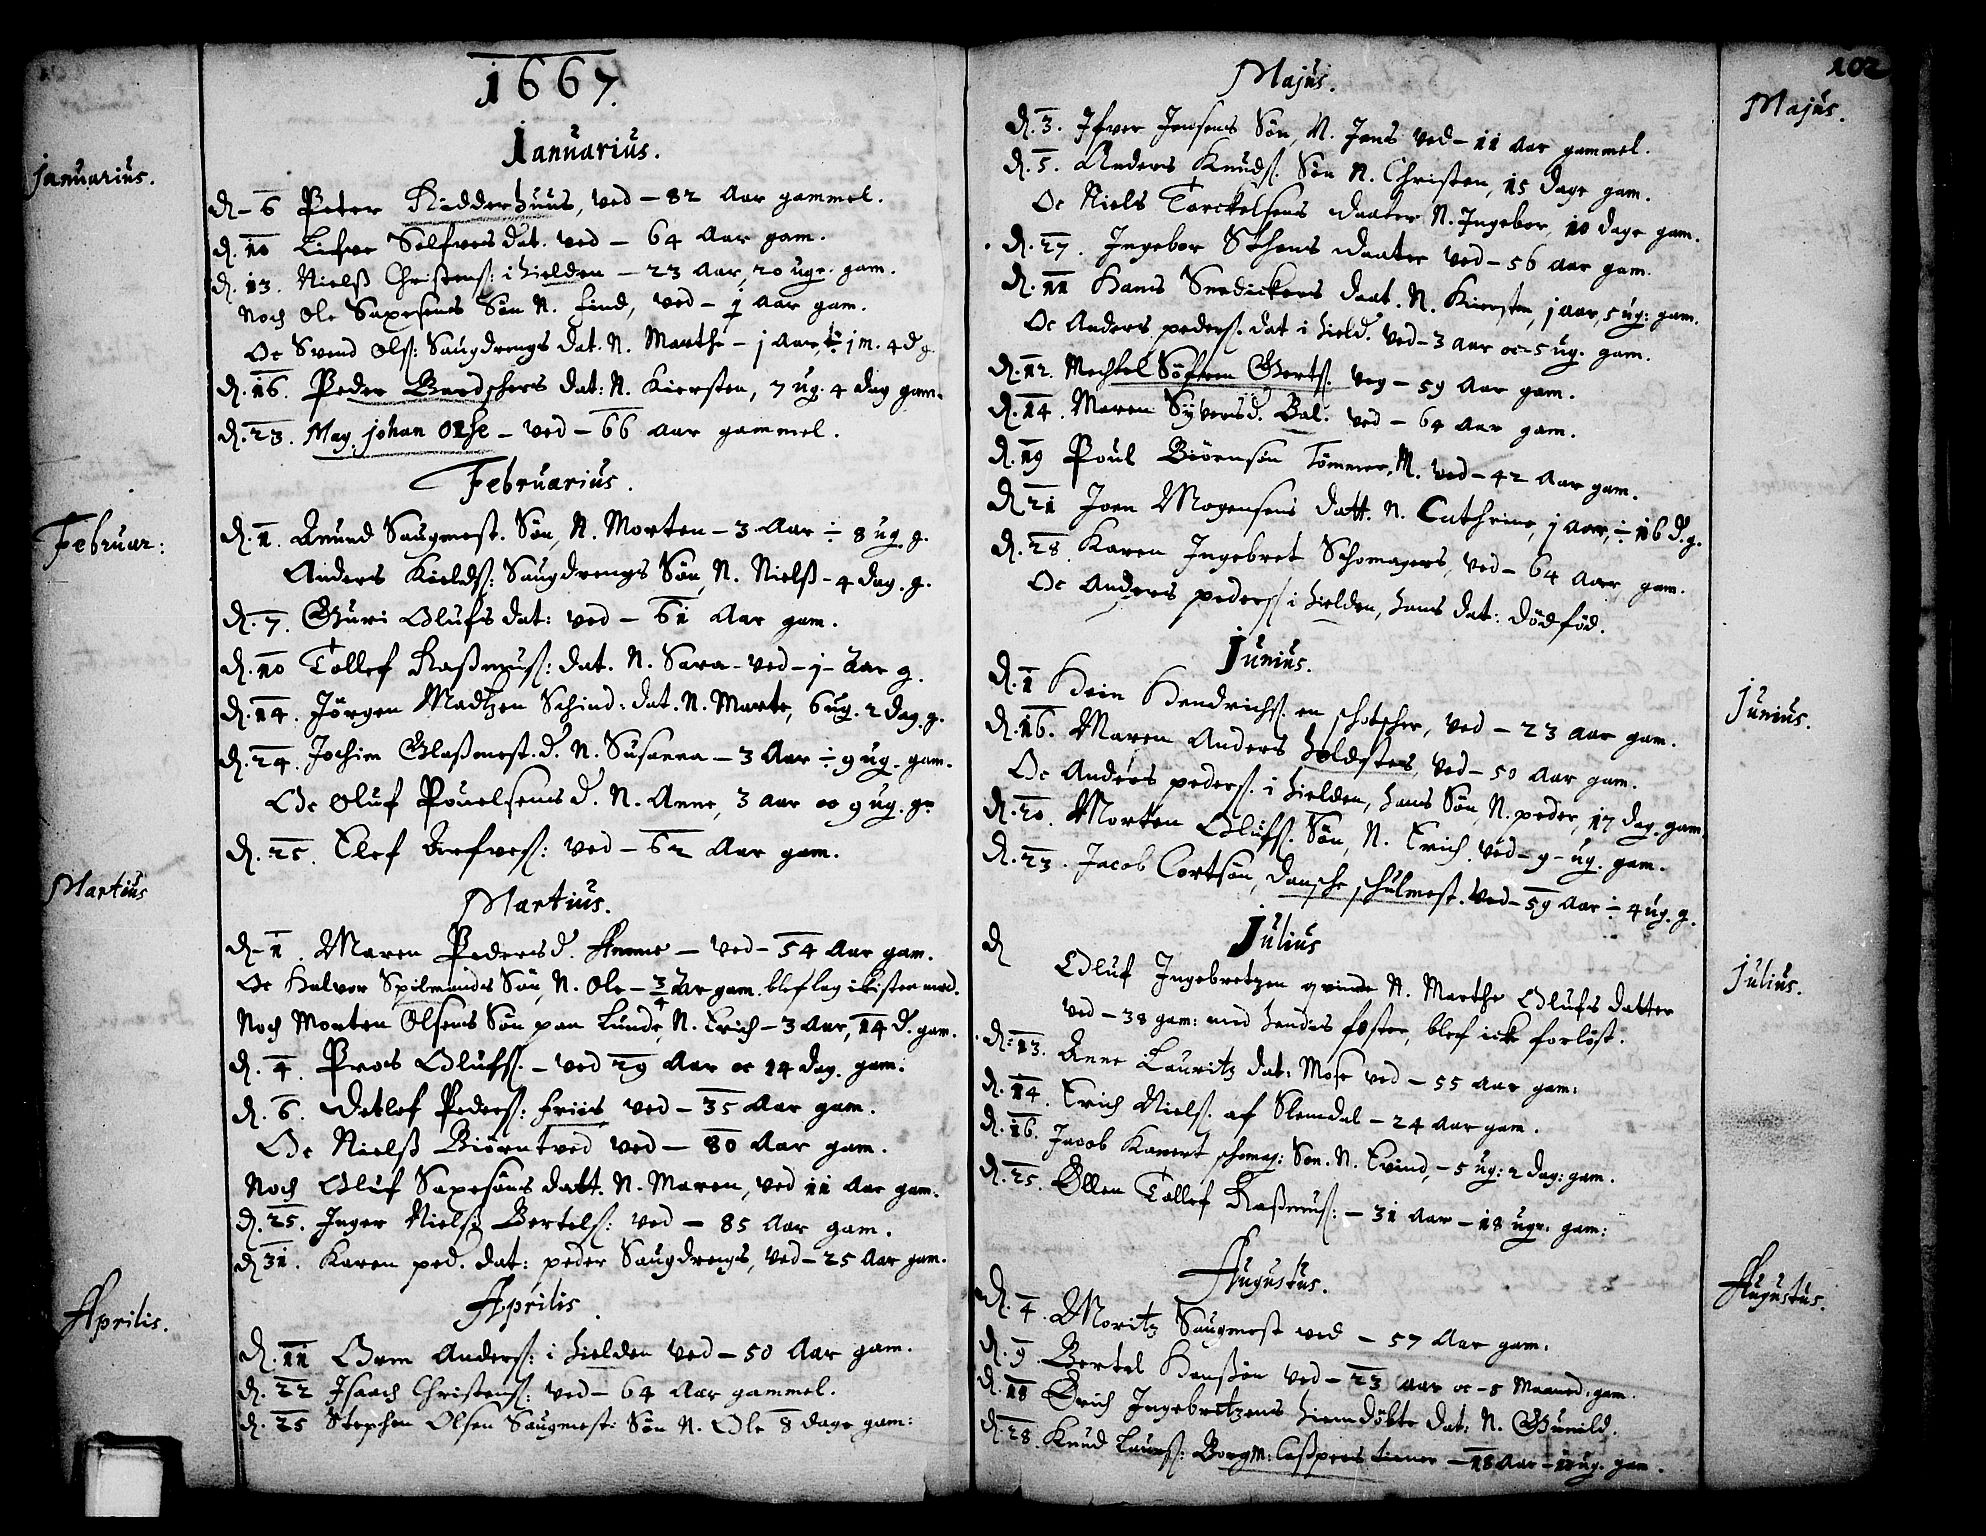 1667.
Januarius.
Januarius.
d. 6 Peter Ridderhuus, ved - 82 Aar gammel.
d. 10 Lifve Solfvesdat. ved - 64 Aar gam.
d. 13. Nielß Christens: i hielden - 23 Aar, 20 uger. gam.
Noch Ole Saxesens Søn N. Eind, ved - 1 Aar gam.
Oc Svend Ols: Saugdrengs dat. N. Marthe - 1 Aar, ÷ 1 m. 4 d g.
d. 16. Peder dat: N. Kiersten, 7 ug. 4 dag gam.
d. 23. Mag. johan - ved - 66 Aar gammel.
Februarius.
Februar:
d. 1. Amund Saugmest. Søn, N. Morten - 3 Aar ÷ 8 ug. g.
Anders Kields: Saugdrengs Søn, N. Nielß - 4 dag. g.
d. 7. Guri Olufs dat: ved - 61 Aar gam.
d. 10 Tollef Raßmus: dat. N. Sara - ved - 1 - Aar g.
d. 14. Jørgen Madtzen Schind: dat. N. Marte, 6 ug. 2 dag. g.
d. 24. Jochim Glaßmest. d. N. Susanna - 3 Aar ÷ 9 ug. gam.
Oc Oluf Pouelsens d. N. Anne, 3 Aar oc 9 ug. g.
d. 25. Elef ved - 62 Aar gam.
Martius
Martius.
d. 1. Maren Pedersd. - ved - 54 Aar gam.
Oc Halvor Spilmands Søn, N. Ole - 3/4 Aar gam. blef lag i kisten med.
Noch Morten Olsens Søn paa Lunde, N. Erich - 3 Aar, 14 d. gam.
d. 4. Proes Olufs. - ved 29 Aar oc 14 dag. gam:
d. 6. Detlef Peders: friis ved - 35 Aar gam.
Oc Nielß Biørntved ved - 80 Aar gam.
Noch Oluf Saxesøns datt. N. Maren, ved 11 Aar gam.
d. 25. Inger Niels Bertels: ved - 85 Aar gam.
d 31. Karen ped. dat: peder Saugdrengs, ved - 25 Aar gam.
Aprilis
Aprilis.
d. 11 Anders: i hielden ved - 50 Aar gam.
d. 22 Isaach Christens: ved - 64 Aar gammel.
d. 25 Stephen Olsen Saugmest: Søn N. Ole 8 dage gam:
102
Majus.
Majus.
d. 3. Ifver Jensens Søn, N. Jens ved - 11 Aar gammel.
d. 5. Anders Knuds. Søn N. Christen, 15 dage gam.
Oc Niels Torckelsens daater N. Ingebor, 10 dage gam.
d. 27. Ingebor Sthens daater ved - 56 Aar gam.
d. 11 Hans Snedickers daat. N. Kiersten, 1 aar, 5 ug: gam.
Oc Anders peders. dat i hield. ved - 3 aar oc - 5 ug. gam.
d. 12. Mechtel Søfren Gerts: veg - 59 Aar gam.
d. 14. Maren Syversd. Bal. ved - 64 Aar gam.
d. 19 Poul Biørnsøn Tømmer. M. ved - 42 Aar gam.
d 21 Joen Mogensens datt. N. Cathrine, 1 aar, ÷ 16 d. g.
d. 28. Karen Ingebret Schomagers, ved - 64 Aar gam.
Oc Anders peders i hielden, hans dat: dødfød.
Junius.
Junius.
d. 1 Hein Hendrichs. en schotscher, ved - 23 aar gam.
d. 16. Maren Anders holdsters, ved - 50 Aar gam.
Oc Anders peders. i hielden, hans Søn, N. peder, 17 dag. gam.
d. 20. Morten Olufs. Søn, N. Erich. ved - 9 - ug. gam.
d. 23. Jacob Cortsøn, dansche schulmest. ved - 59 Aar ÷ 4 ug. g.
Julius
Julius.
d Oluf Ingebretzen qvinde N. Marthe Olufs datter
ved - 38 gam: med hendes foster, blef icke forløst.
d. 13. Anne Lauritz dat: Mose ved - 55 Aar gam:
d. 14. Erich Niels. af Slemdal - 24 Aar gam.
d. 16. Jacob Kanert schomag: Søn. N. Evind, - 5 ug: 2 dag: gam.
d. 25. Ollen Tollef Raßmus: - 31 Aar - 18 uger gam:
Augustus.
Augustus.
d. 4. Moritz Saugmest ved - 57 Aar gam.
d. 9. Bertel Hanßøn ved - 23 aar oc - 8 Maaned. gam.
d. 18 Erich Ingebretzens hiemdøbte dat: N. Gunild.
d. 28. Knud Laurs: Borgm: Caßpers tiener - 18 Aar - ug. gam.